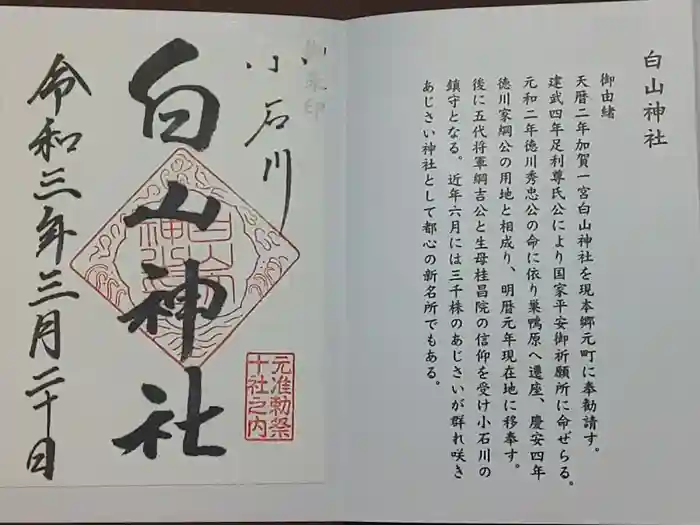 白山神社
御由緒
天暦二年加賀一宮白山神社を現本郷元町に奉勧請す。
建武四年足利尊氏公により国家平安御祈願所に命ぜらる。
元和二年徳川秀忠公の命に依り巣鴨原へ遷座、慶安四年
徳川家綱公の用地と相成り、明暦元年現在地に移奉す。
後に五代将軍綱吉公と生母桂昌院の信仰を受け小石川の
鎮守となる。近年六月には三千株のあじさいが群れ咲き
あじさい神社として都心の新名所でもある。
小石川
白山神社
白山神社
元准勅祭
十社之内
令和三年三月二十日